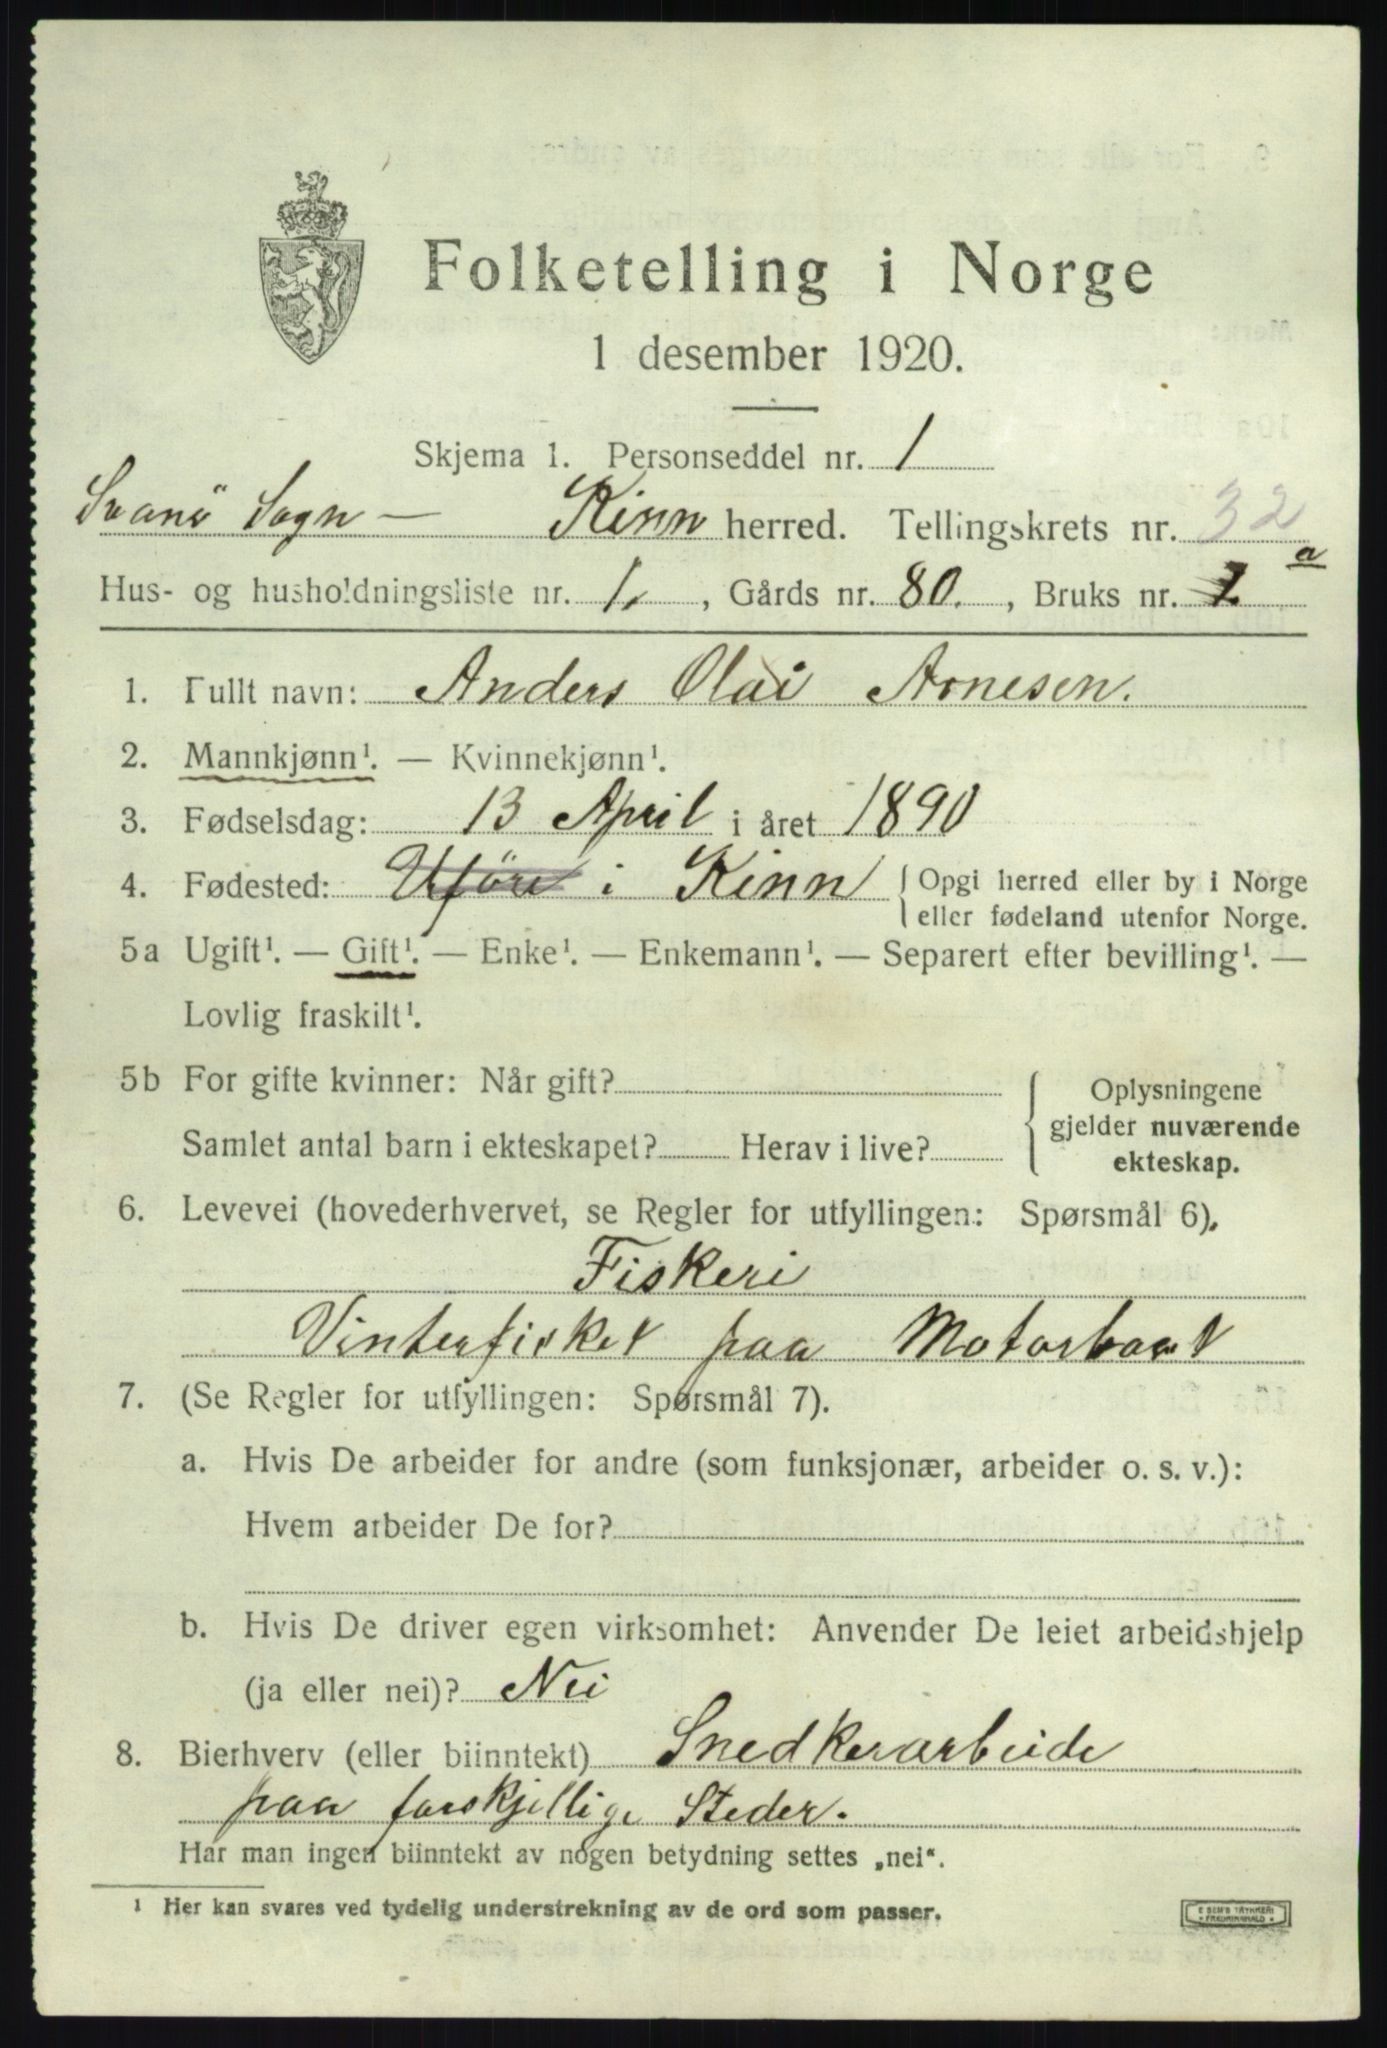 Folketelling i Norge
1 desember 1920.
Skjema 1. Personseddel nr. 1
Svanö Sogn — Kinn herred. Tellingskrets nr. 32
Hus- og husholdningsliste nr. 1, Gårds nr. 80., Bruks nr. 1 a
1. Fullt navn: Anders Olai Arnesen.
2. Mannkjønn¹. — Kvinnekjønn¹.
3. Fødselsdag: 13 April i året 1890
4. Fødested: i Kinn { Opgi herred eller by i Norge
eller fødeland utenfor Norge.
5a Ugift¹. — Gift¹. — Enke¹. — Enkemann¹. — Separert efter bevilling¹. —
Lovlig fraskilt¹.
5b For gifte kvinner: Når gift?
Samlet antal barn i ekteskapet? Herav i live?
Oplysningene
gjelder nuværende
ekteskap.
6. Levevei (hovederhvervet, se Regler for utfyllingen: Spørsmål 6).
Fiskeri
Vinterfisket paa Motorbaat
7. (Se Regler for utfyllingen: Spørsmål 7).
a. Hvis De arbeider for andre (som funksjonær, arbeider o. s. v.):
Hvem arbeider De for?
b. Hvis De driver egen virksomhet: Anvender De leiet arbeidshjelp
(ja eller nei)? Nei
8. Bierhverv (eller biinntekt) Snedkerarbeide
paa forskjellige Steder.
Har man ingen biinntekt av nogen betydning settes „nei“.
¹ Her kan svares ved tydelig understrekning av de ord som passer.
E SEM'S TRYKKERI
FREDRIKSHALD